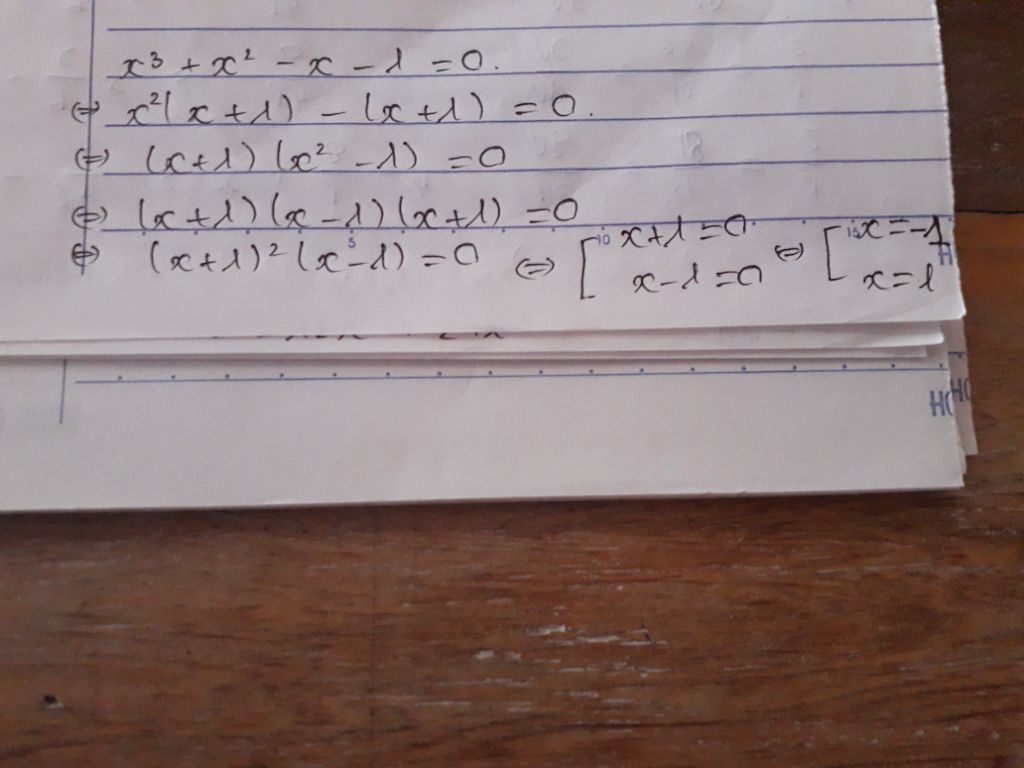 x³ + x² - x - 1 = 0.
⇔ x²(x + 1) - (x + 1) = 0.
⇔ (x + 1)(x² - 1) = 0
⇔ (x + 1)(x - 1)(x + 1) = 0
⇔ (x + 1)²(x - 1) = 0 ⇔ [ x + 1 = 0 ⇔ [ x = -1
x - 1 = 0 x = 1
5 10 15
HO
HO